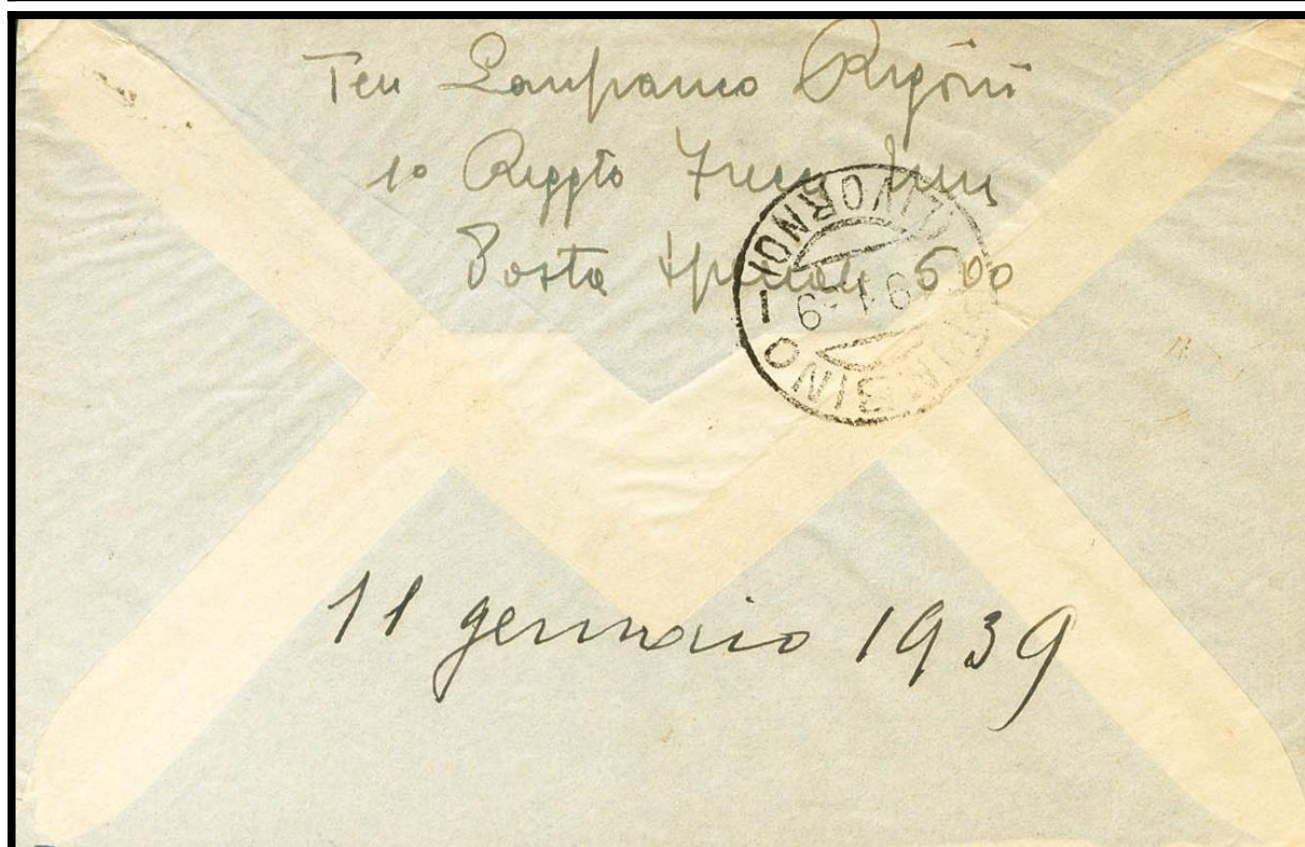 Ten Lanfranco Rigoni
1o Reggto Frecce
Posta Speciale 500
(LIVORNO)
11 gennaio 1939